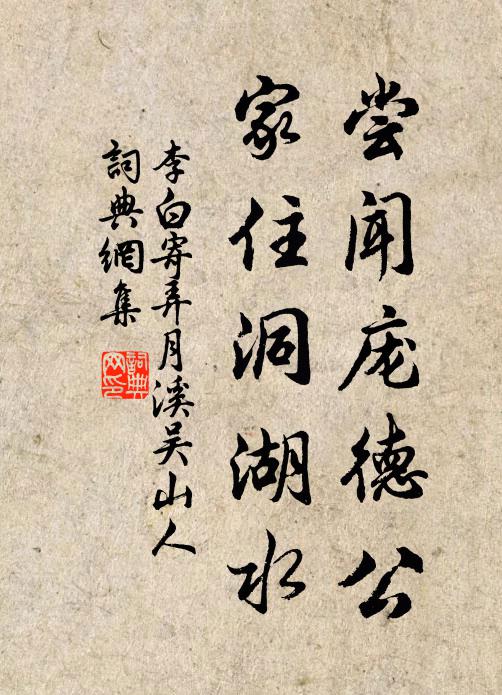 尝闻庞德公
家住洞湖水
李白寄弄月溪吴山人
詞典網集
詞典网印